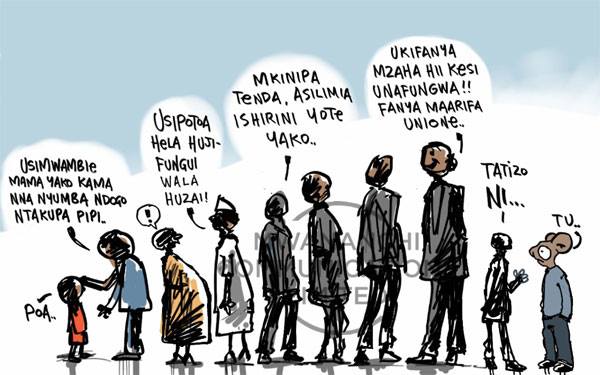 USIMWAMBIE
MAMA YAKO KAMA
NNA NYUMBA NDOGO
NTAKUPA PIPI..
POA..
!
USIPOTOA
HELA HUJI-
FUNGUI
WALA
HUZAI!!
MKINIPA
TENDA, ASILIMIA
ISHIRINI YOTE
YAKO..
UKIFANYA
MZAHA HII KESI
UNAFUNGWA!!
FANYA MAARIFA
UNIONE..
TATIZO
NI...
TU..
MWANANCHI